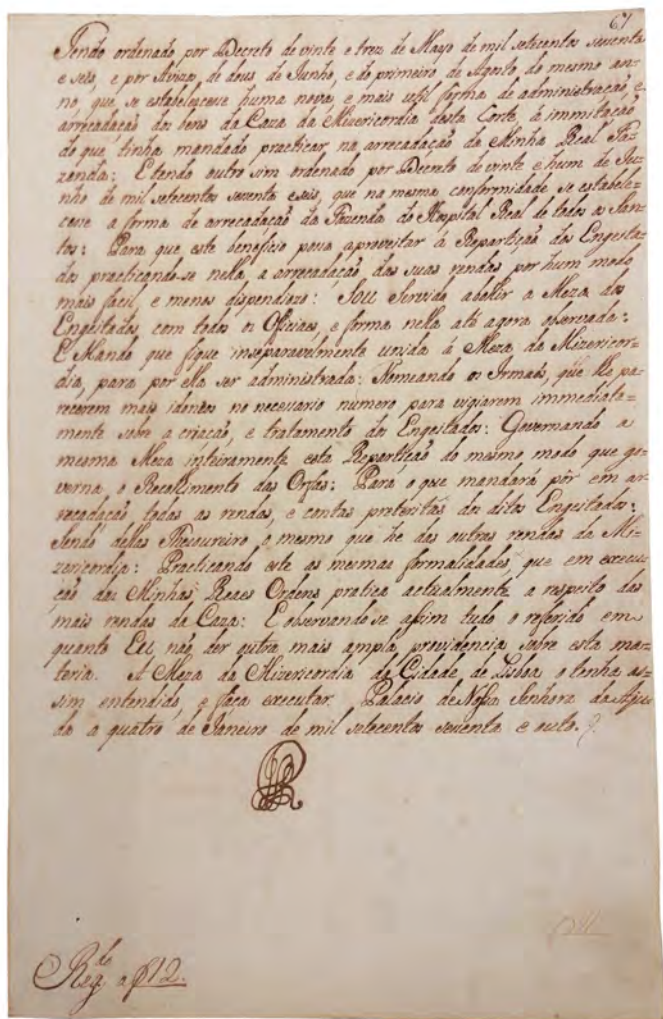 67
Tendo ordenado por Decreto de vinte e trez de Mayo de mil setecentos sessenta
e seis, e por Avizos de dous de Junho, e do primeiro de Agosto do mesmo an-
no, que se estabelecesse huma nova, e mais util forma de administração, e
arrecadação dos bens da Caza da Mizericordia desta Corte, á immitação
do que tinha mandado practicar na arrecadação da Minha Real Fa-
zenda: E tendo outro sim ordenado por Decreto de vinte e hum de Ju-
nho de mil setecentos sessenta e seis, que na mesma conformidade se estabele-
cesse a forma de arrecadação da Fazenda do Hospital Real de todos os San-
tos: Para que este beneficio possa aproveitar á Repartição dos Engeita-
dos practicando-se nella a arrecadação das suas rendas por hum modo
mais facil, e menos dispendiozo: Sou Servido abolir a Meza dos
Engeitados com todos os Officiaes, e forma nella até agora observada:
E Mando que fique inseparavelmente unida á Meza da Mizericor-
dia, para por ella ser administrada: Nomeando os Irmaõs, que lhe pa-
recerem mais idoneos no necessario numero para vigiarem immediata-
mente sobre a criação, e tratamento dos Engeitados: Governando a
mesma Meza inteiramente esta Repartição do mesmo modo que go-
verna o Recolhimento das Orfãs: Para o que mandará pôr em ar-
recadação todas as rendas, e contas preteritas dos ditos Engeitados:
Sendo dellas Thezoureiro o mesmo que he das outras rendas da Mi-
zericordia: Practicando este as mesmas formalidades, que em execu-
ção das Minhas Reaes Ordens pratica actualmente a respeito das
mais rendas da Caza: E observando-se assim tudo o referido em
quanto Eu não der outra mais ampla providencia sobre esta ma-
teria. A Meza da Mizericordia da Cidade de Lisboa o tenha as-
sim entendido, e faça executar. Palacio de Nossa Senhora da Aju-
da a quatro de Janeiro de mil setecentos sessenta e outo.
Reg.do a f 12.